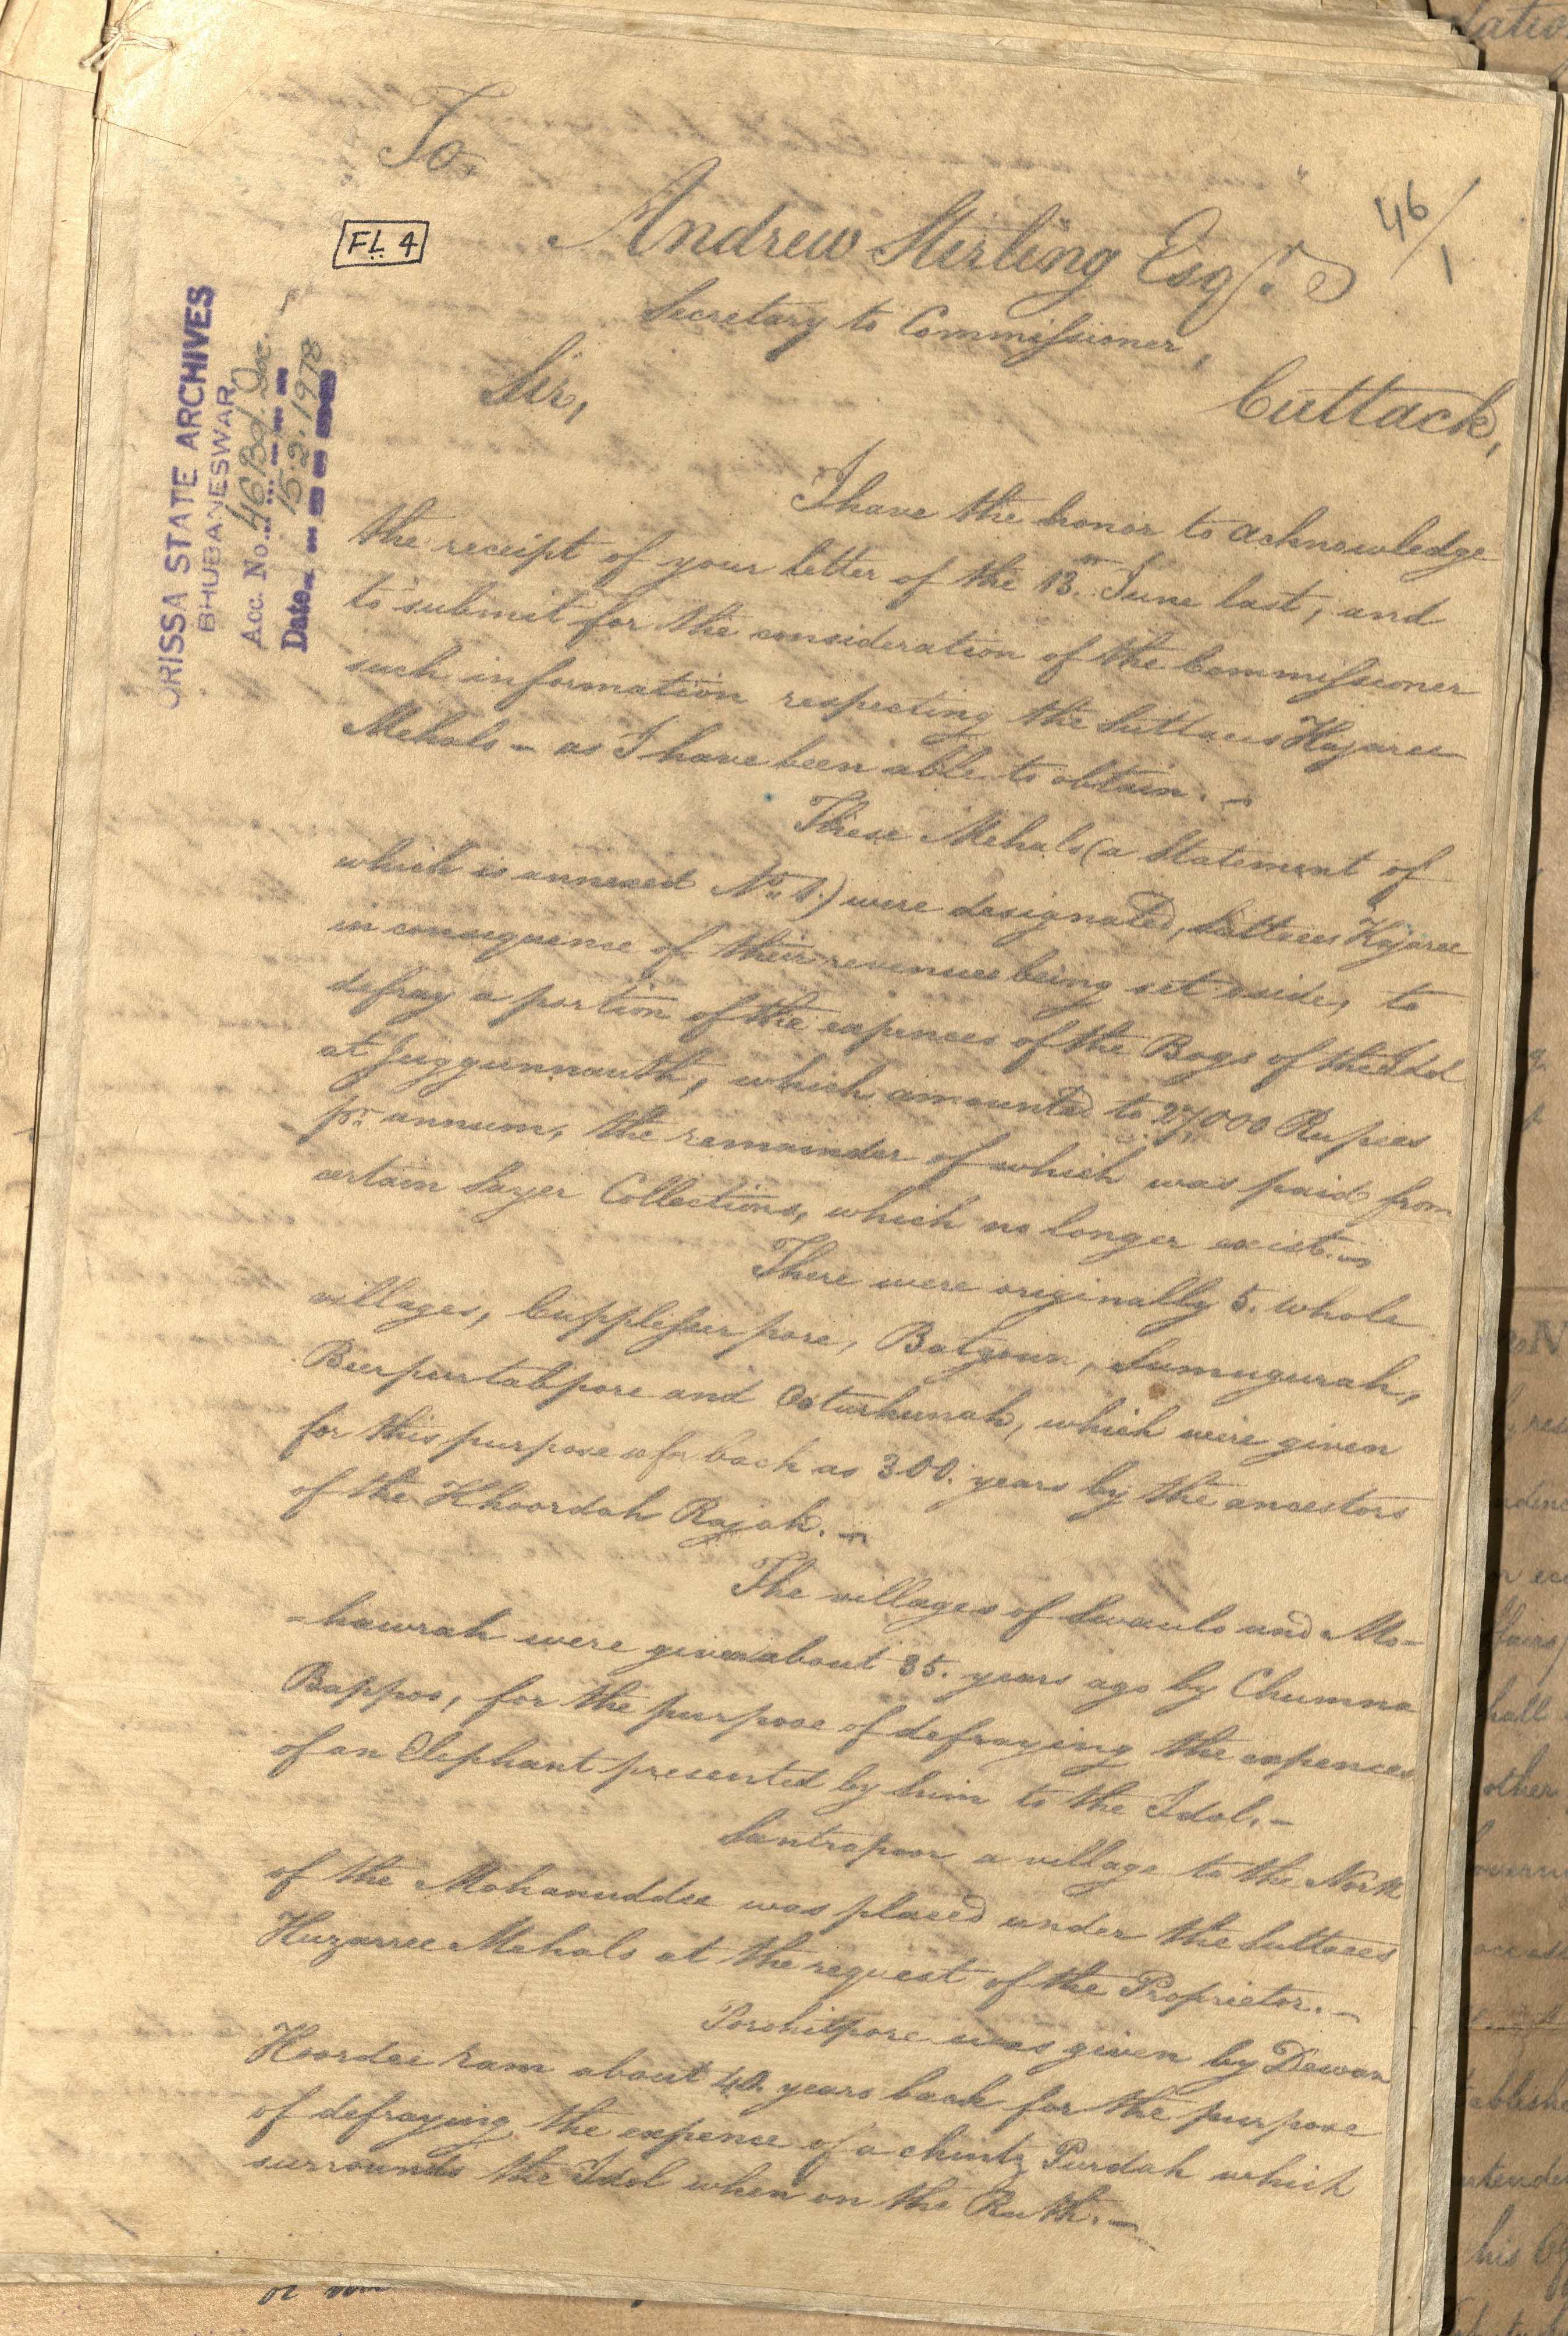 To
Andrew Stirling Esqr.
Secretary to Commissioner,
Cuttack,
46/1
FL 4
ORISSA STATE ARCHIVES
BHUBANESWAR
Acc. No. 46 Bd. Doc.
Date 15.2.1978
Sir,
I have the honor to acknowledge
the receipt of your letter of the 13th June last, and
to submit for the consideration of the Commissioner
such information respecting the Suttaees Hajaree
Mehals – as I have been able to obtain. –
These Mehals (a Statement of
which is annexed No. 1.) were designated, Suttaees Hajaree
in consequence of their revenues being set aside, to
defray a portion of the expences of the Bogs of the Idol
at Juggunnauth, which amounted to 27,000 Rupees
pr. annum, the remainder of which was paid from
certain Sayer Collections, which no longer exist. –
There were originally 5. whole
villages, Cupplessierpore, Batgoun, Sumugurah,
Beerpurtabpore and which were given
for this purpose as far back as 300. years by the ancestors
of the Khoordah Rajah. –
The villages of and Mo-
-hawrah were given about 35. years ago by Chumna
Bappoo, for the purpose of defraying the expences
of an Elephant presented by him to the Idol. –
Santrapoor a village to the North
of the Mohanuddee was placed under the Suttaees
Huzarree Mehals at the request of the Proprietor. –
Porohitpore was given by Dewan
Hoordee Ram about 40. years back for the purpose
of defraying the expence of a chintz Purdah which
surrounds the Idol when on the Ruth. –